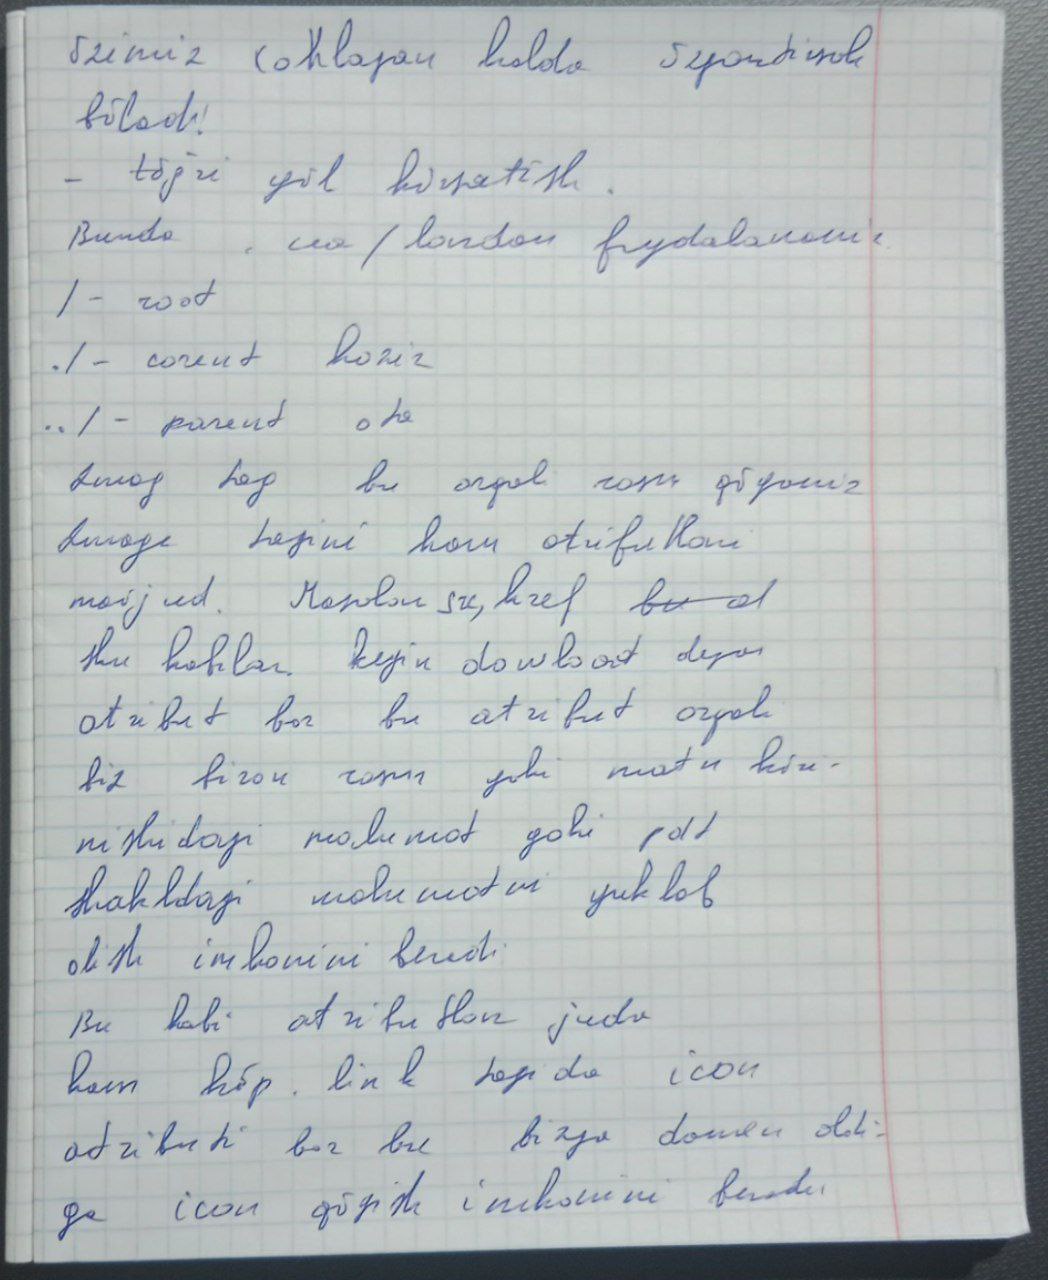 õzimiz xohlagan holda õzgartirsak
bõladi!
- tõğri yõl kõrsatish.
Bunda . / foydalanamiz.
/ - root
./ - corent hozir
../ - parent ota
Imag tag bu orqali rasm qõyamiz
Image tagini ham atributlari
mavjud. Masalan src, href
shu kabilar. keyin dowload degan
atribut bor bu atribut orqali
biz biron rasm yoki matn kõri-
nishidagi malumot yoki pdf
shakldagi malumotni yuklab
olish imkonini beradi
Bu kabi atributlar juda
ham kõp. link tagida icon
atributi bor bu bizga domen oldi-
ga icon qõyish imkonini beradi